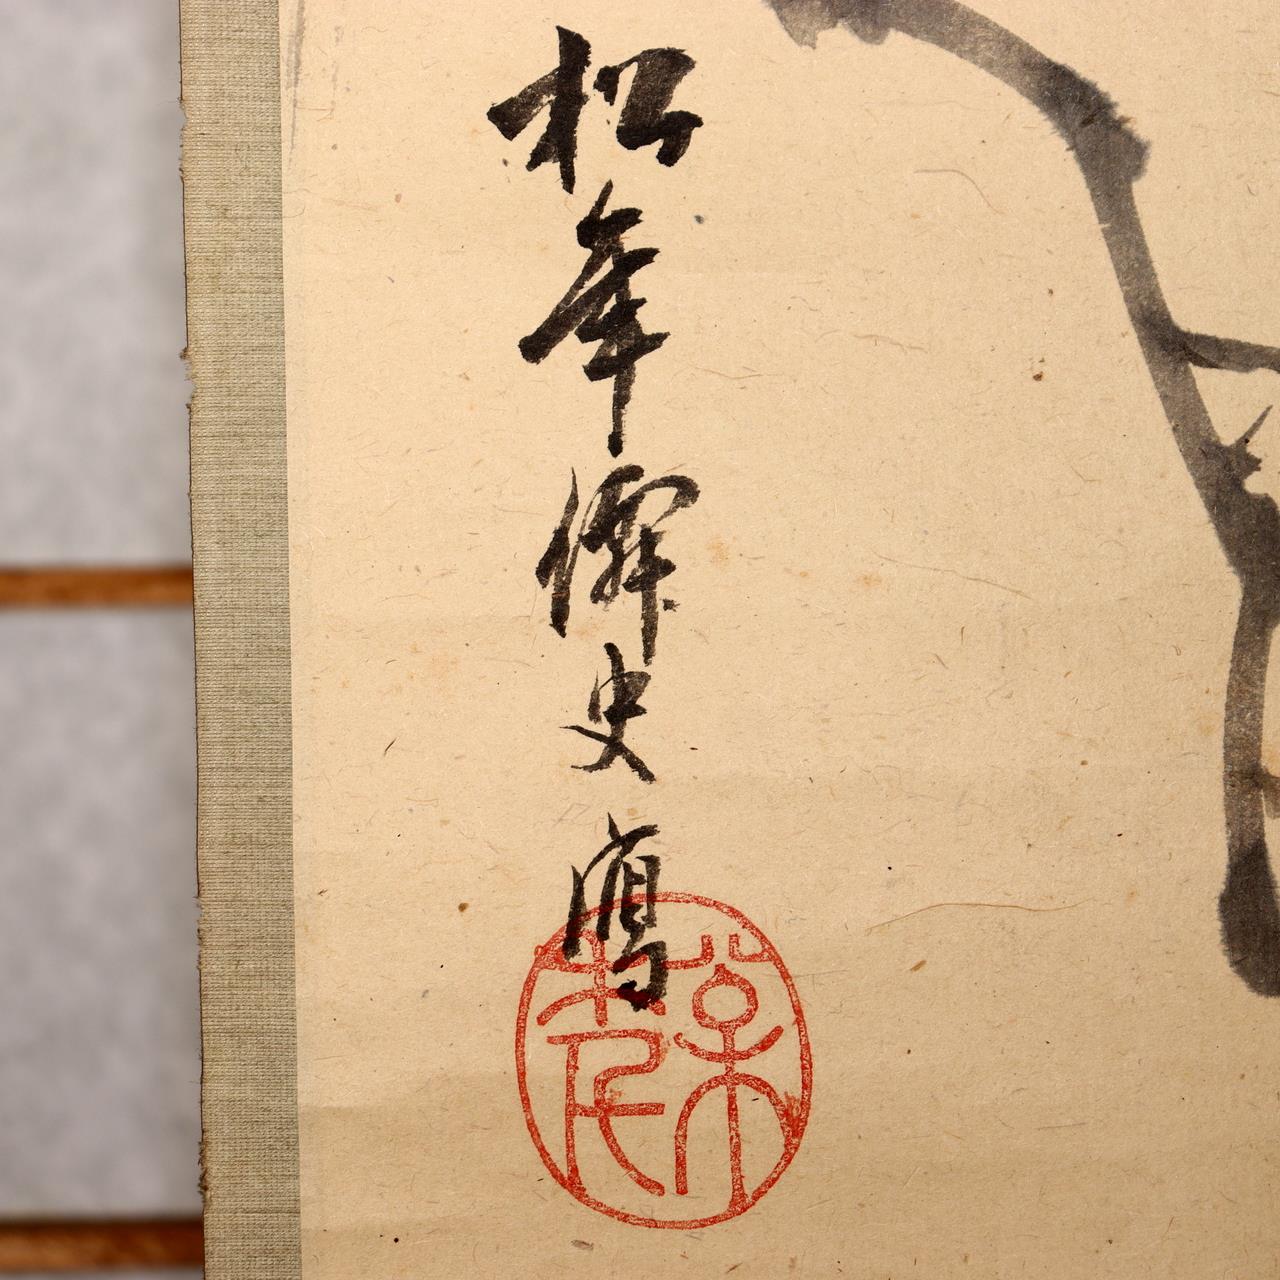 松年僊史寫